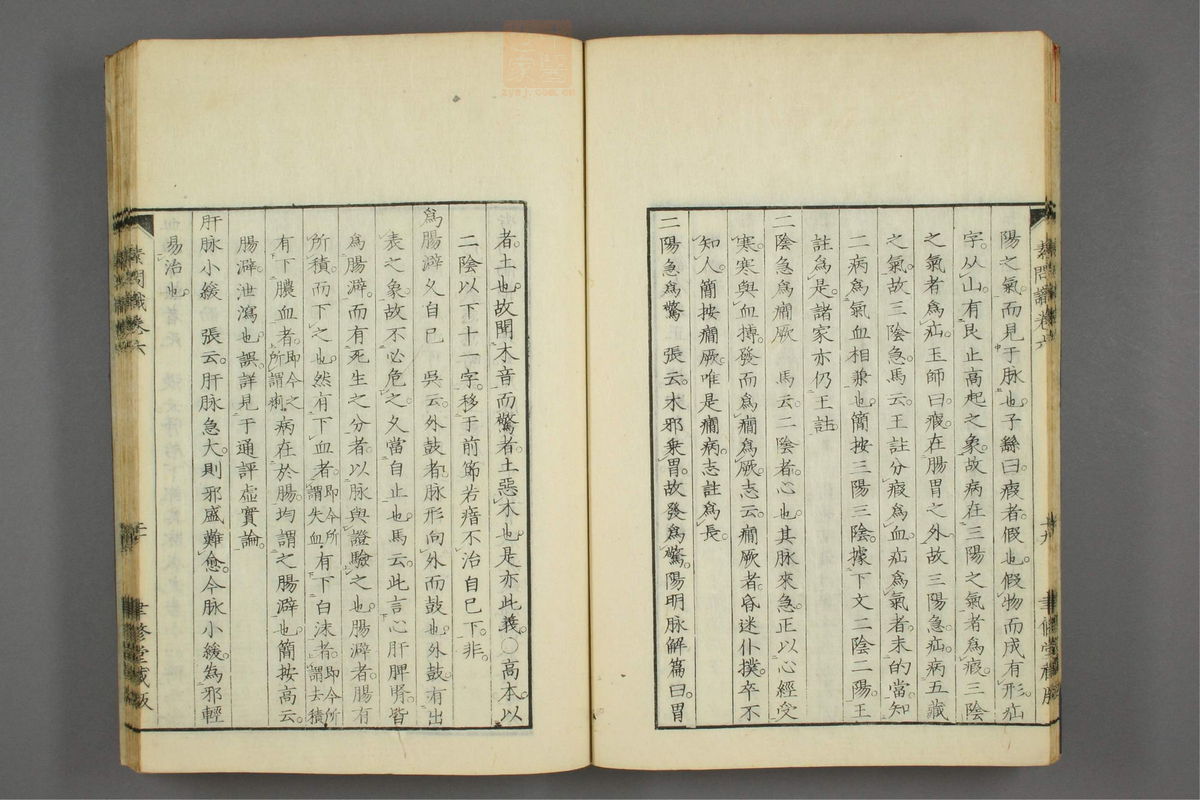 陽之氣。而見于脉也。子繇曰。瘕者。假也。假物而成有形。疝
字。从山。有艮止高起之象。故病在三陽之氣者。爲瘕。三陰
之氣者。爲疝。玉師曰。瘕。在腸胃之外。故三陽急。疝。病五藏
之氣。故三陰急。馬云。王註分瘕爲血。疝爲氣者。未的當。知
二病爲氣血相兼也。簡按三陽三陰。據下文二陰二陽。王
註爲是。諸家亦仍王註
二陰急爲癇厥　馬云。二陰者。心也。其脉來急。正以心經受
寒。寒與血搏。發而爲癇爲厥。志云。癇厥者。昏迷仆撲。卒不
知人。簡按癇厥。唯是癇病。志註爲長。
二陽急爲驚　張云。木邪乗胃。故發爲驚。陽明脉解篇曰。胃
素問識卷六
廿九
聿修堂藏版
者。土也。故聞木音而驚者。土惡木也。是亦此義。○高本以
二陰以下十一字。移于前節若瘖不治自已下。非。
爲腸澼久自已　吳云。外鼓者。脉形向外而鼓也。外鼓。有出
表之象。故不必危。久當自止也。馬云。此言心肝脾腎皆
爲腸澼。而有死生之分者。以脉與證驗之也。腸澼者。腸有
所積。而下之也。然有下血者。即今所謂失血有下白沫者。即今所謂去積
有下膿血者。即今之所謂痢。病在於腸。均謂之腸澼也。簡按高云。
腸澼泄瀉也。誤。詳見于通評虚實論。
肝脉小緩　張云。肝脉急大。則邪盛難愈。今脉小緩。為邪輕
易治也。
素問識卷六
三十
聿修堂藏版